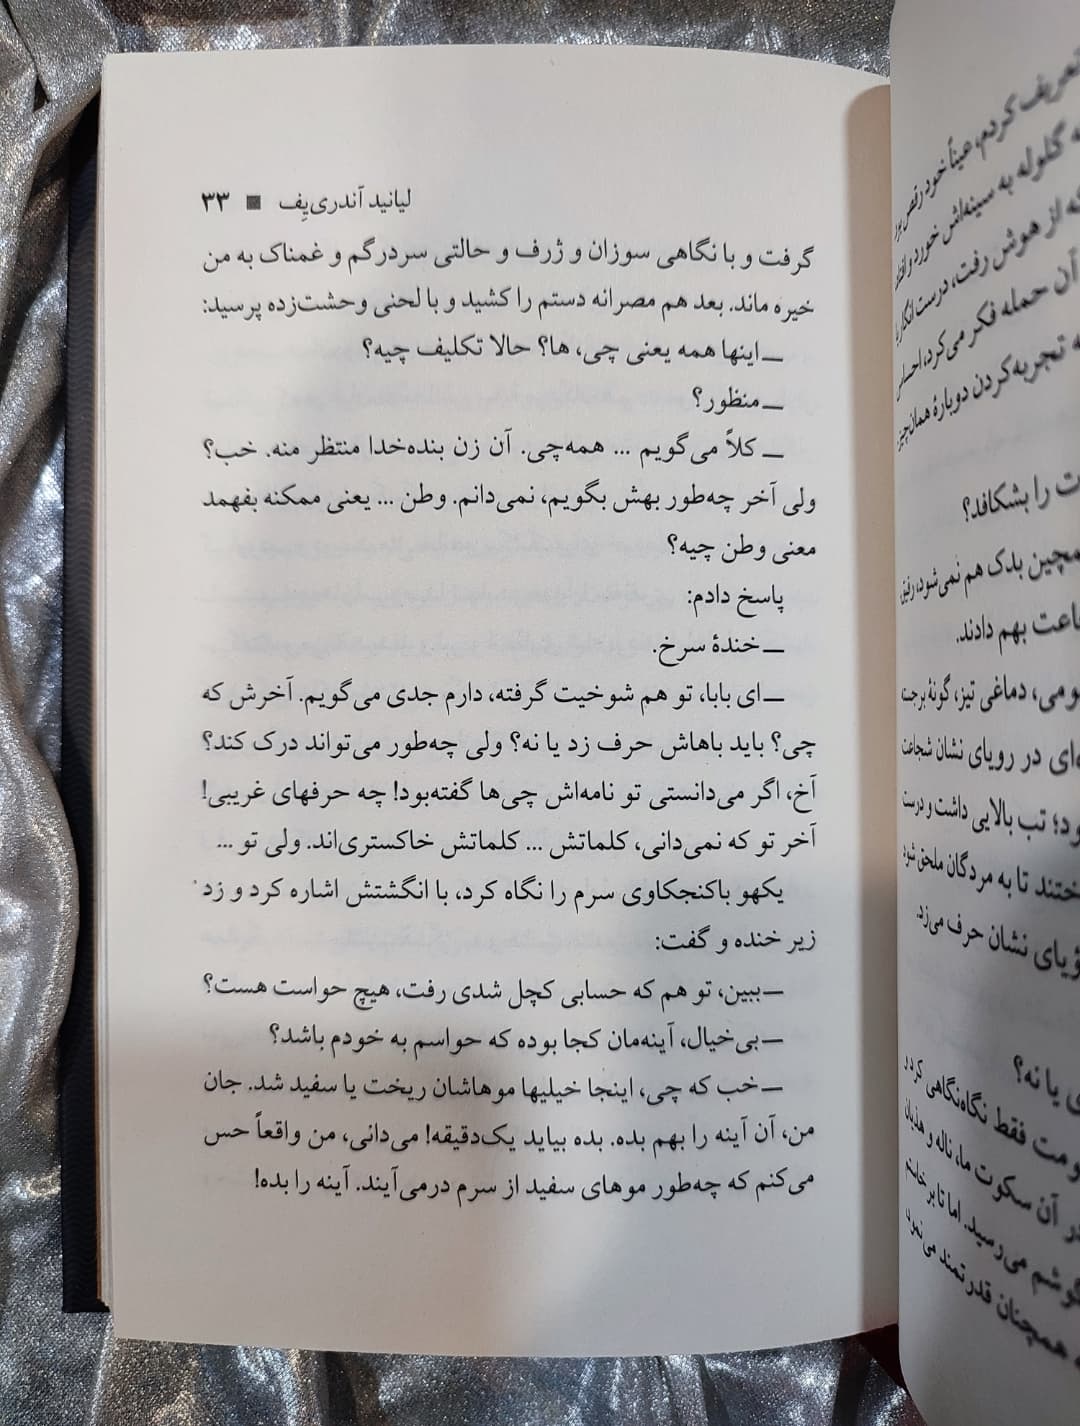 لیانید آندری‌یِف ■ ۳۳
گرفت و با نگاهی سوزان و ژرف و حالتی سردرگم و غمناک به من
خیره ماند. بعد هم مصرانه دستم را کشید و با لحنی وحشت‌زده پرسید:
ــ اینها همه یعنی چی، ها؟ حالا تکلیف چیه؟
ــ منظور؟
ــ کلاً می‌گویم ... همه‌چی. آن زن بنده‌خدا منتظر منه. خب؟
ولی آخر چه‌طور بهش بگویم، نمی‌دانم. وطن ... یعنی ممکنه بفهمد
معنی وطن چیه؟
پاسخ دادم:
ــ خندهٔ سرخ.
ــ ای بابا، تو هم شوخیت گرفته، دارم جدی می‌گویم. آخرش که
چی؟ باید باهاش حرف زد یا نه؟ ولی چه‌طور می‌تواند درک کند؟
آخ، اگر می‌دانستی تو نامه‌اش چی‌ها گفته‌بود! چه حرفهای غریبی!
آخر تو که نمی‌دانی، کلماتش ... کلماتش خاکستری‌اند. ولی تو ...
یکهو باکنجکاوی سرم را نگاه کرد، با انگشتش اشاره کرد و زد
زیر خنده و گفت:
ــ ببین، تو هم که حسابی کچل شدی رفت، هیچ حواست هست؟
ــ بی‌خیال، آینه‌مان کجا بوده که حواسم به خودم باشد؟
ــ خب که چی، اینجا خیلیها موهاشان ریخت یا سفید شد. جان
من، آن آینه را بهم بده. بده بیاید یک‌دقیقه! می‌دانی، من واقعاً حس
می‌کنم که چه‌طور موهای سفید از سرم درمی‌آیند. آینه را بده!
تعریف کردم، عیناً خود رقص بود
گلوله به سینه‌اش خورد و افتاد
که از هوش رفت، درست انگار
آن حمله فکر می‌کرد، احساس
تجربه‌کردن دوبارهٔ همان‌چیز
را بشکافد؟
همچین بدک هم نمی‌شود، رفیق
بهم دادند.
دماغی تیز، گونهٔ برجسته
در رویای نشان شجاعت
تب بالایی داشت و درست
تا به مردگان ملحق شود
نشان حرف می‌زد.
یا نه؟
فقط نگاه‌نگاهی کرد و
آن سکوت ما، ناله و هذیان
گوشم می‌رسید. اما تا برخاستم
همچنان قدرتمند می‌نمود،